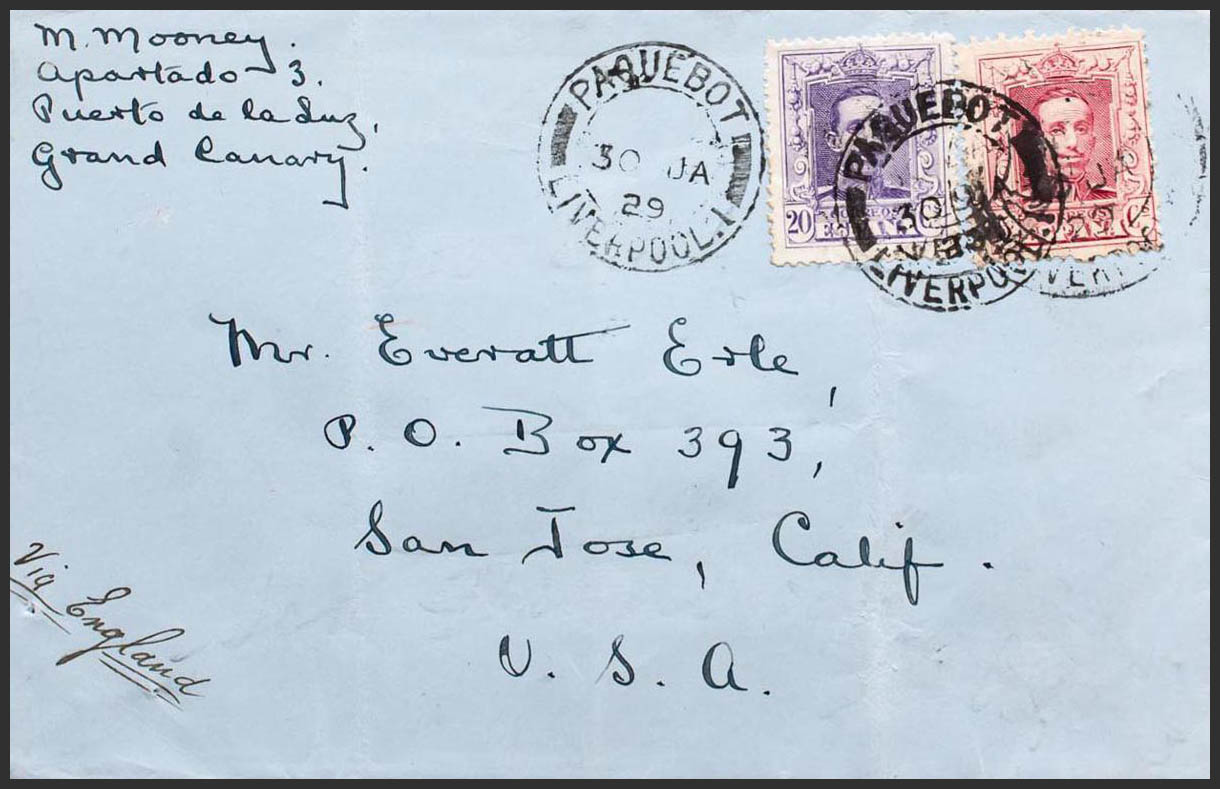 M. Mooney.
Apartado 3.
Puerto de la Luz,
Grand Canary.
PAQUEBOT
30 JA
29
LIVERPOOL.1
20
PAQUEBOT
30
LIVERPOOL.1
Mr. Everatt Erle,
P. O. Box 393,
San Jose, Calif.
U. S. A.
Via England